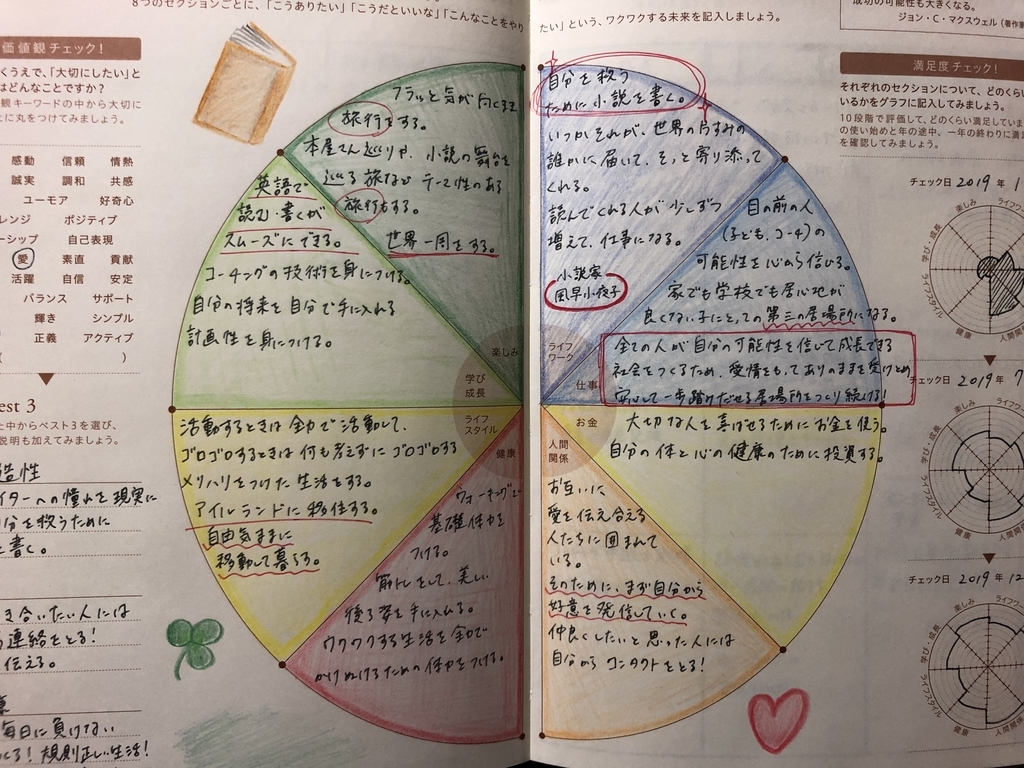 8つのセクションごとに、「こうありたい」「こうだといいな」「こんなことをやり
たい」という、ワクワクする未来を記入しましょう。
成功の可能性も大きくなる。
ジョン・C・マクスウェル（著作
価値観チェック！
くうえで、「大切にしたい」と
はどんなことですか？
観キーワードの中から大切に
に丸をつけてみましょう。
感動　信頼　情熱
誠実　調和　共感
ユーモア　好奇心
レンジ　ポジティブ
ーシップ　自己表現
愛　素直　貢献
活躍　自信　安定
バランス　サポート
輝き　シンプル
正義　アクティブ
)
est 3
た中からベスト3を選び、
説明も加えてみましょう。
造性
イターへの憧れを現実に
分を救うために
書く。
き合いたい人には
連絡をとる！
伝える。
毎日に負けない
る！規則正しい生活！
フラッと気が向くまま
旅行をする。
本屋さん巡りや、小説の舞台を
巡る旅など テーマ性のある
旅行もする。
世界一周をする。
楽しみ
英語で
読む・書くが
スムーズにできる。
コーチングの技術を身につける。
自分の将来を自分で手に入れる
計画性を身につける。
学び
成長
活動するときは全力で活動して、
ゴロゴロするときは何も考えずにゴロゴロする
メリハリをつけた生活をする。
アイルランドに移住する。
自由気ままに
移動して暮らす。
ライフ
スタイル
ウォーキングで
基礎体力を
つける。
筋トレをして、美しい
後ろ姿を手に入れる。
ワクワクする生活を全力で
かけぬけるための体力をつける。
健康
自分を救う
ために小説を書く。
いつかそれが、世界の片すみの
誰かに届いて、そっと寄り添って
くれる。
読んでくれる人が少しずつ
増えて、仕事になる。
小説家
風早小夜子
ライフ
ワーク
目の前の人
(子ども、コーチ)の
可能性を心から信じる。
家でも学校でも居心地が
良くない子にとっての第三の居場所になる。
全ての人が自分の可能性を信じて成長できる
社会をつくるため、愛情をもってありのままを受けとめ
安心して一歩踏みだせる居場所をつくり続ける！
仕事
お金
大切な人を喜ばせるためにお金を使う。
自分の体と心の健康のために投資する。
人間
関係
お互いに
愛を伝え合える
人たちに囲まれて
いる。
そのために、まず自分から
好意を発信していく。
仲良くしたいと思った人には
自分からコンタクトをとる！
満足度チェック！
それぞれのセクションについて、どのくらい
いるかをグラフに記入してみましょう。
10段階で評価して、どのくらい満足していま
の使い始めと年の途中、一年の終わりに満
を確認してみましょう。
チェック日 2019 年 1
楽しみ
ライフワ
学び・成長
ライフスタイル
健康
人間関係
チェック日 2019 年 7
楽しみ
学び・成長
ライフスタイル
健康
人間関係
チェック日 2019 年 12
楽しみ
ライフワ
学び・成長
ライフスタイル
健康
人間関係